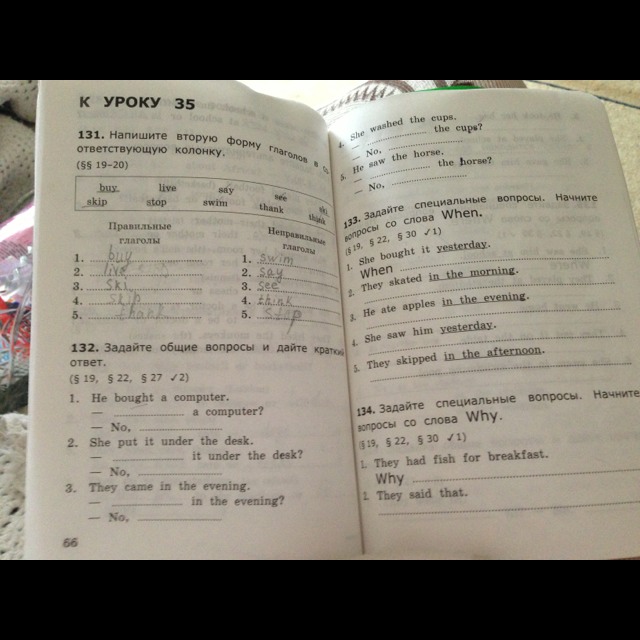 К УРОКУ 35
131. Напишите вторую форму глаголов в со-
ответствующую колонку.
(§§ 19–20)
buy live say see ski
skip stop swim thank think
Правильные
глаголы
Неправильные
глаголы
1. buy
2. live
3. ski
4. skip
5. thank
1. swim
2. say
3. see
4. think
5. stop
132. Задайте общие вопросы и дайте краткий
ответ.
(§ 19, § 22, § 27 ✓2)
1. He bought a computer.
— ............ a computer?
— No, ............
2. She put it under the desk.
— ............ it under the desk?
— No, ............
3. They came in the evening.
— ............ in the evening?
— No, ............
66
4. She washed the cups.
— ............ the cups?
— No, ............
5. He saw the horse.
— ............ the horse?
— No, ............
133. Задайте специальные вопросы. Начните
вопросы со слова When.
(§ 19, § 22, § 30 ✓1)
1. She bought it yesterday.
When ............
2. They skated in the morning.
3. He ate apples in the evening.
4. She saw him yesterday.
5. They skipped in the afternoon.
134. Задайте специальные вопросы. Начните
вопросы со слова Why.
(§ 19, § 22, § 30 ✓1)
1. They had fish for breakfast.
Why ............
2. They said that.